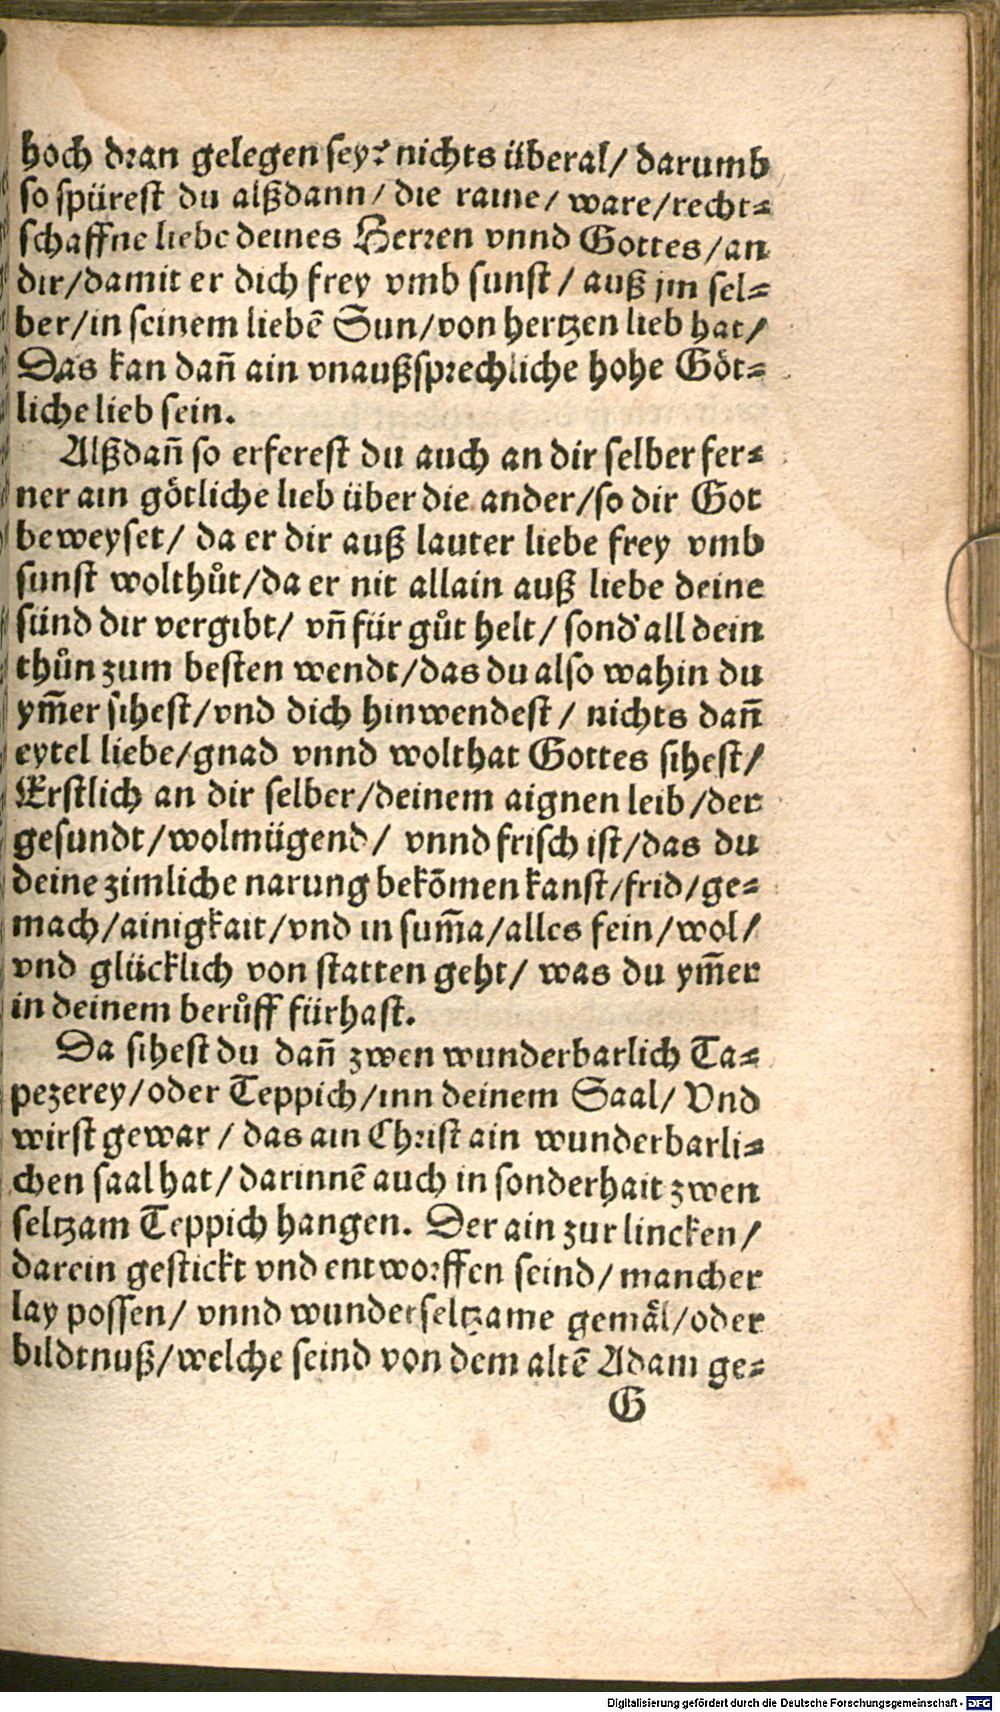 hoch dran gelegen sey? nichts überal/ darumb
so spürest du alßdann/ die raine/ ware/recht⸗
schaffne liebe deines Herren vnnd Gottes/an
dir/damit er dich frey vmb sunst/ auß jm sel⸗
ber/in seinem liebē Sun/von hertzen lieb hat/
Das kan dañ ain vnaußsprechliche hohe Göt⸗
liche lieb sein.
Alßdañ so erferest du auch an dir selber fer⸗
ner ain götliche lieb über die ander/so dir Got
beweyset/ da er dir auß lauter liebe frey vmb
sunst wolthůt/da er nit allain auß liebe deine
sünd dir vergibt/ vñ für gůt helt/ sond' all dein
thůn zum besten wendt/das du also wahin du
ym̄er sihest/vnd dich hinwendest/ nichts dañ
eytel liebe/gnad vnnd wolthat Gottes sihest/
Erstlich an dir selber/deinem aignen leib/der
gesundt/wolmügend/ vnnd frisch ist/das du
deine zimliche narung bekōmen kanst/frid/ge⸗
mach/ainigkait/vnd in sum̄a/alles fein/wol/
vnd glücklich von statten geht/ was du ym̄er
in deinem berůff fürhast.
Da sihest du dañ zwen wunderbarlich Ta⸗
pezerey/oder Teppich/inn deinem Saal/ Vnd
wirst gewar/ das ain Christ ain wunderbarli⸗
chen saal hat/ darinnē auch in sonderhait zwen
seltzam Teppich hangen. Der ain zur lincken/
darein gestickt vnd entworffen seind/ mancher
lay possen/ vnnd wunderseltzame gemäl/oder
bildtnuß/welche seind von dem altē Adam ge⸗
G
Digitalisierung gefördert durch die Deutsche Forschungsgemeinschaft - DFG